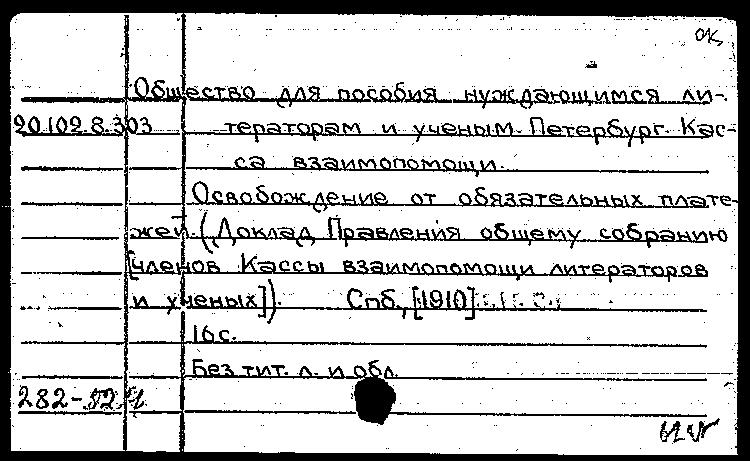 Общество для пособия нуждающимся ли-
20.102.8.303 тераторам и ученым. Петербург. Кас-
са взаимопомощи.
Освобождение от обязательных плате-
жей. (Доклад Правления общему собранию
[членов Кассы взаимопомощи литераторов
и ученых]). Спб., [1910].
16 с.
Без тит. л. и обл.